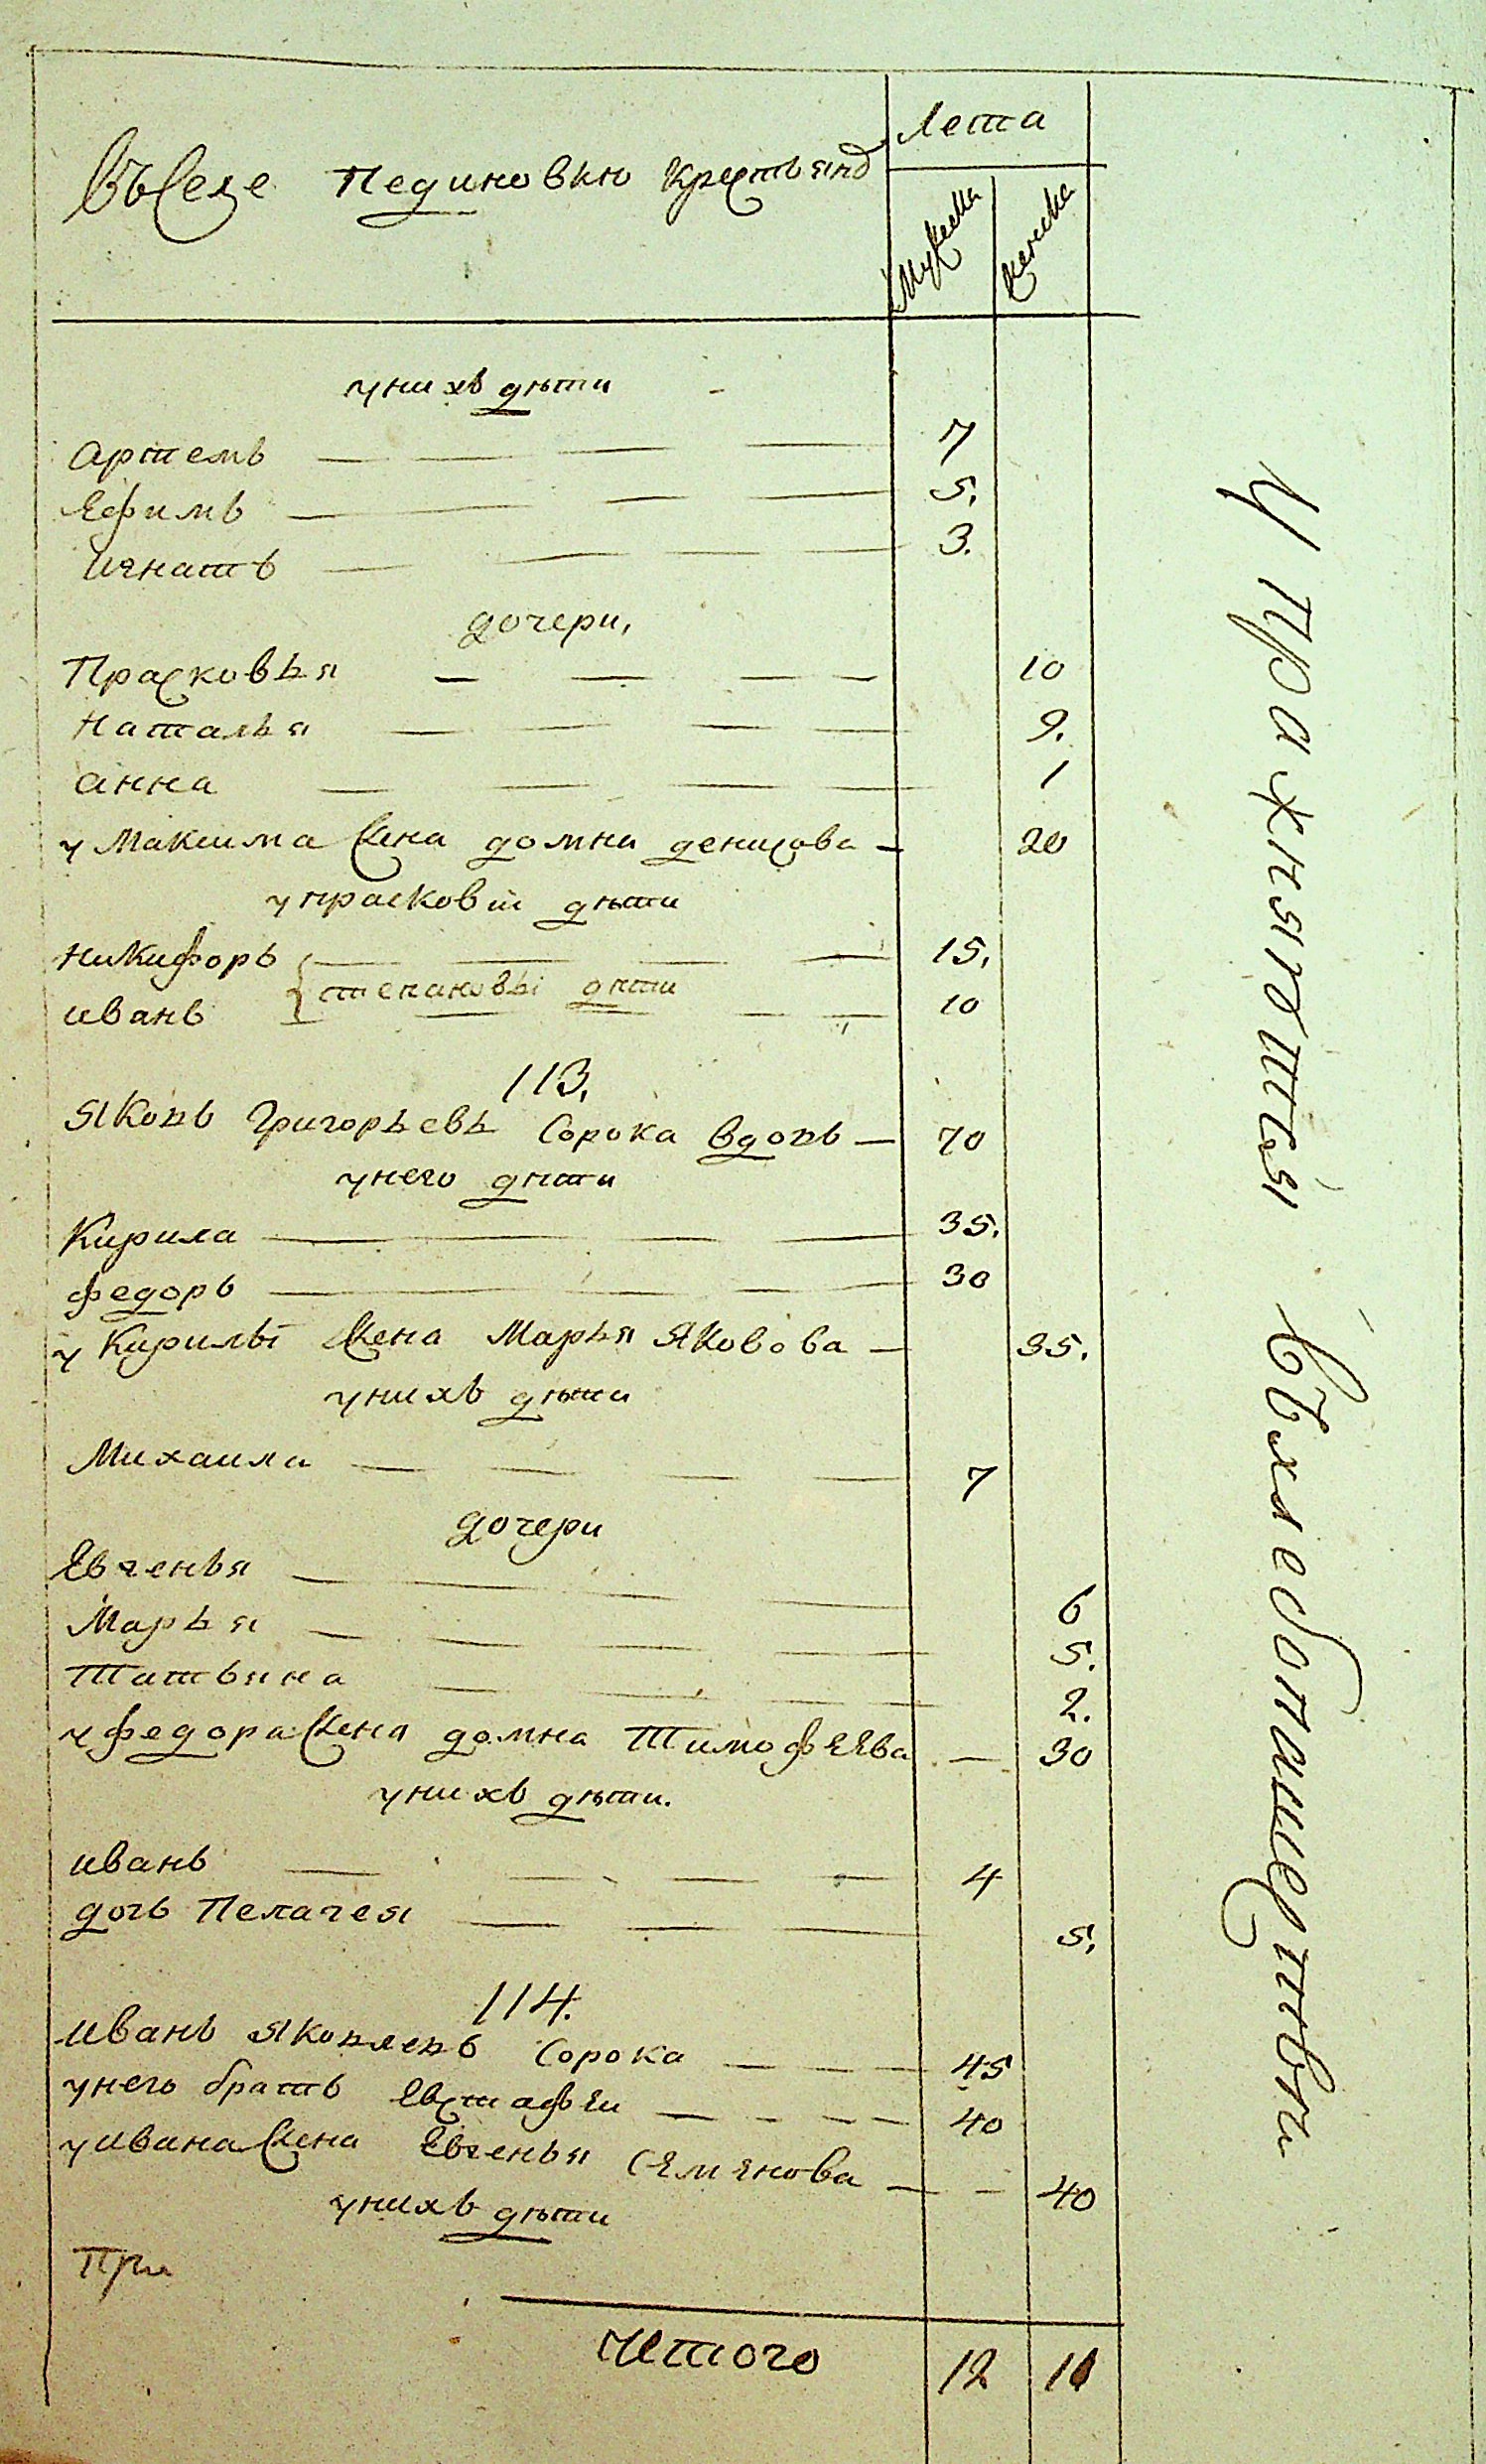 Лета
Въ Селе Пединовки крестьянъ
Мужеска
Женска
у нихъ дѣти
Артемъ 7
Ефимъ 5.
Игнатъ 3.
дочери,
Прасковья 10
Наталья 9.
Анна 1
у Максима Жена домна денисова 20
у прасковіи дѣти
Никифоръ 15.
степановы дѣти
иванъ 10
113.
Яковъ Григорьевъ Сорока вдовъ 70
у него дѣти
Кирила 35.
федоръ 30
у Кирилы Жена Марья Яковова 35.
у нихъ дѣти
Михаила 7
дочери
Евгенья 6
Марья 5.
Татьяна 2.
у федора Жена домна Тимофеева 30
у нихъ дѣти.
иванъ 4
дочь Пелагея 5.
114.
иванъ Яковлевъ Сорока 45
у него братъ Евстафеи 40
у ивана Жена Евгенья Семенова 40
у нихъ дѣти
При
Итого 12 11
Упражняютця въ хлебопашестве